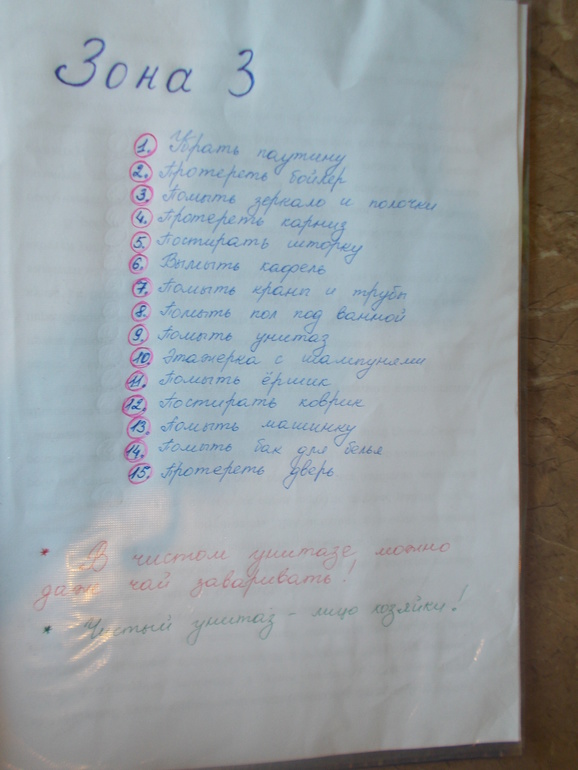 Зона 3
1. Убрать паутину
2. Протереть бойлер
3. Помыть зеркало и полочки
4. Протереть карниз
5. Постирать шторку
6. Вымыть кафель
7. Помыть краны и трубы
8. Помыть пол под ванной
9. Помыть унитаз
10. Этажерка с шампунями
11. Помыть ёршик
12. Постирать коврик
13. Помыть машинку
14. Помыть бак для белья
15. Протереть дверь
* В чистом унитазе можно
даже чай заваривать!
* Чистый унитаз - лицо хозяйки!